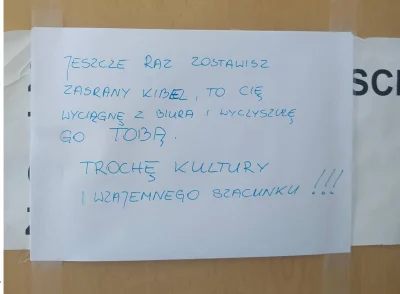 JESZCZE RAZ ZOSTAWISZ
ZASRANY KIBEL, TO CIĘ
WYCIĄGNĘ Z BIURA I WYCZYSZCZĘ
GO TOBĄ.
TROCHĘ KULTURY
I WZAJEMNEGO SZACUNKU !!!
SCI